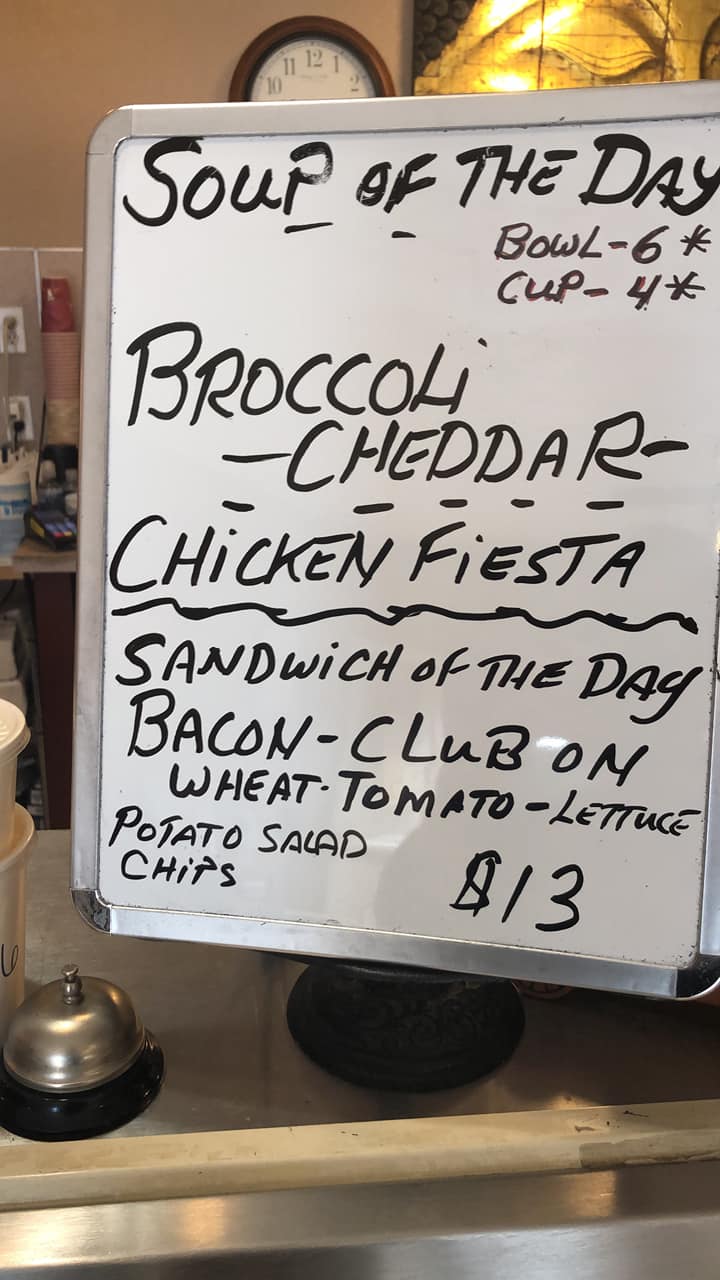 11 12
10 2
SOUP OF THE DAY
BOWL-6*
CUP-4*
BROCCOLi
-CHEDDAR-
CHiCKEN FiESTA
SANDWiCH OF THE DAY
BACON-CLUB ON
WHEAT-TOMATO-LETTUCE
POTATO SALAD
CHiPS
$13